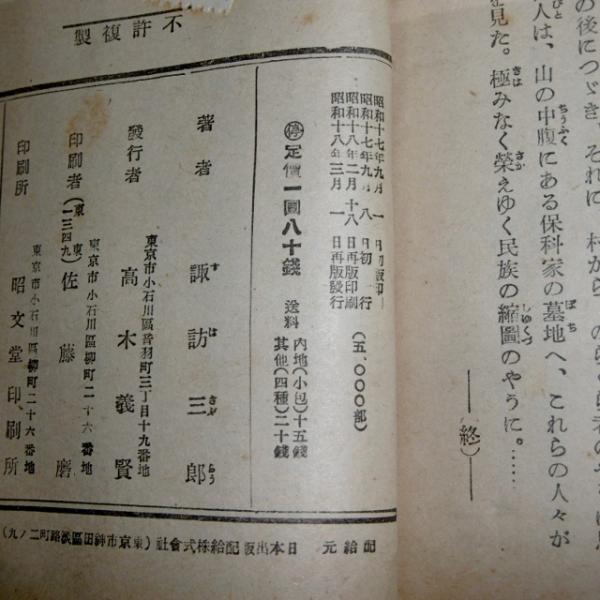 の後につゞき、それに
人は、山の中腹にある保科家の墓地へ、これらの人々が
見た。極みなく榮えゆく民族の縮圖のやうに。……
――(終)――
不許複製
昭和十七年九月一日初版印
昭和十七年九月八日初行
昭和十八年二月十八日再版印刷
昭和十八年三月一日再版發行
(五、〇〇〇部)
㊡定價一圓八十錢
送料 内地(小包)十五錢
其他(四種)二十錢
著者 諏訪三郎
東京市小石川區音羽町三丁目十九番地
發行者 高木義賢
東京市小石川區柳町二十六番地
印刷者(東東一三四九)佐藤磨
東京市小石川區柳町二十六番地
印刷所 昭文堂印刷所
配給元 日本出版配給株式會社(東京市神田區淡路町二ノ九)